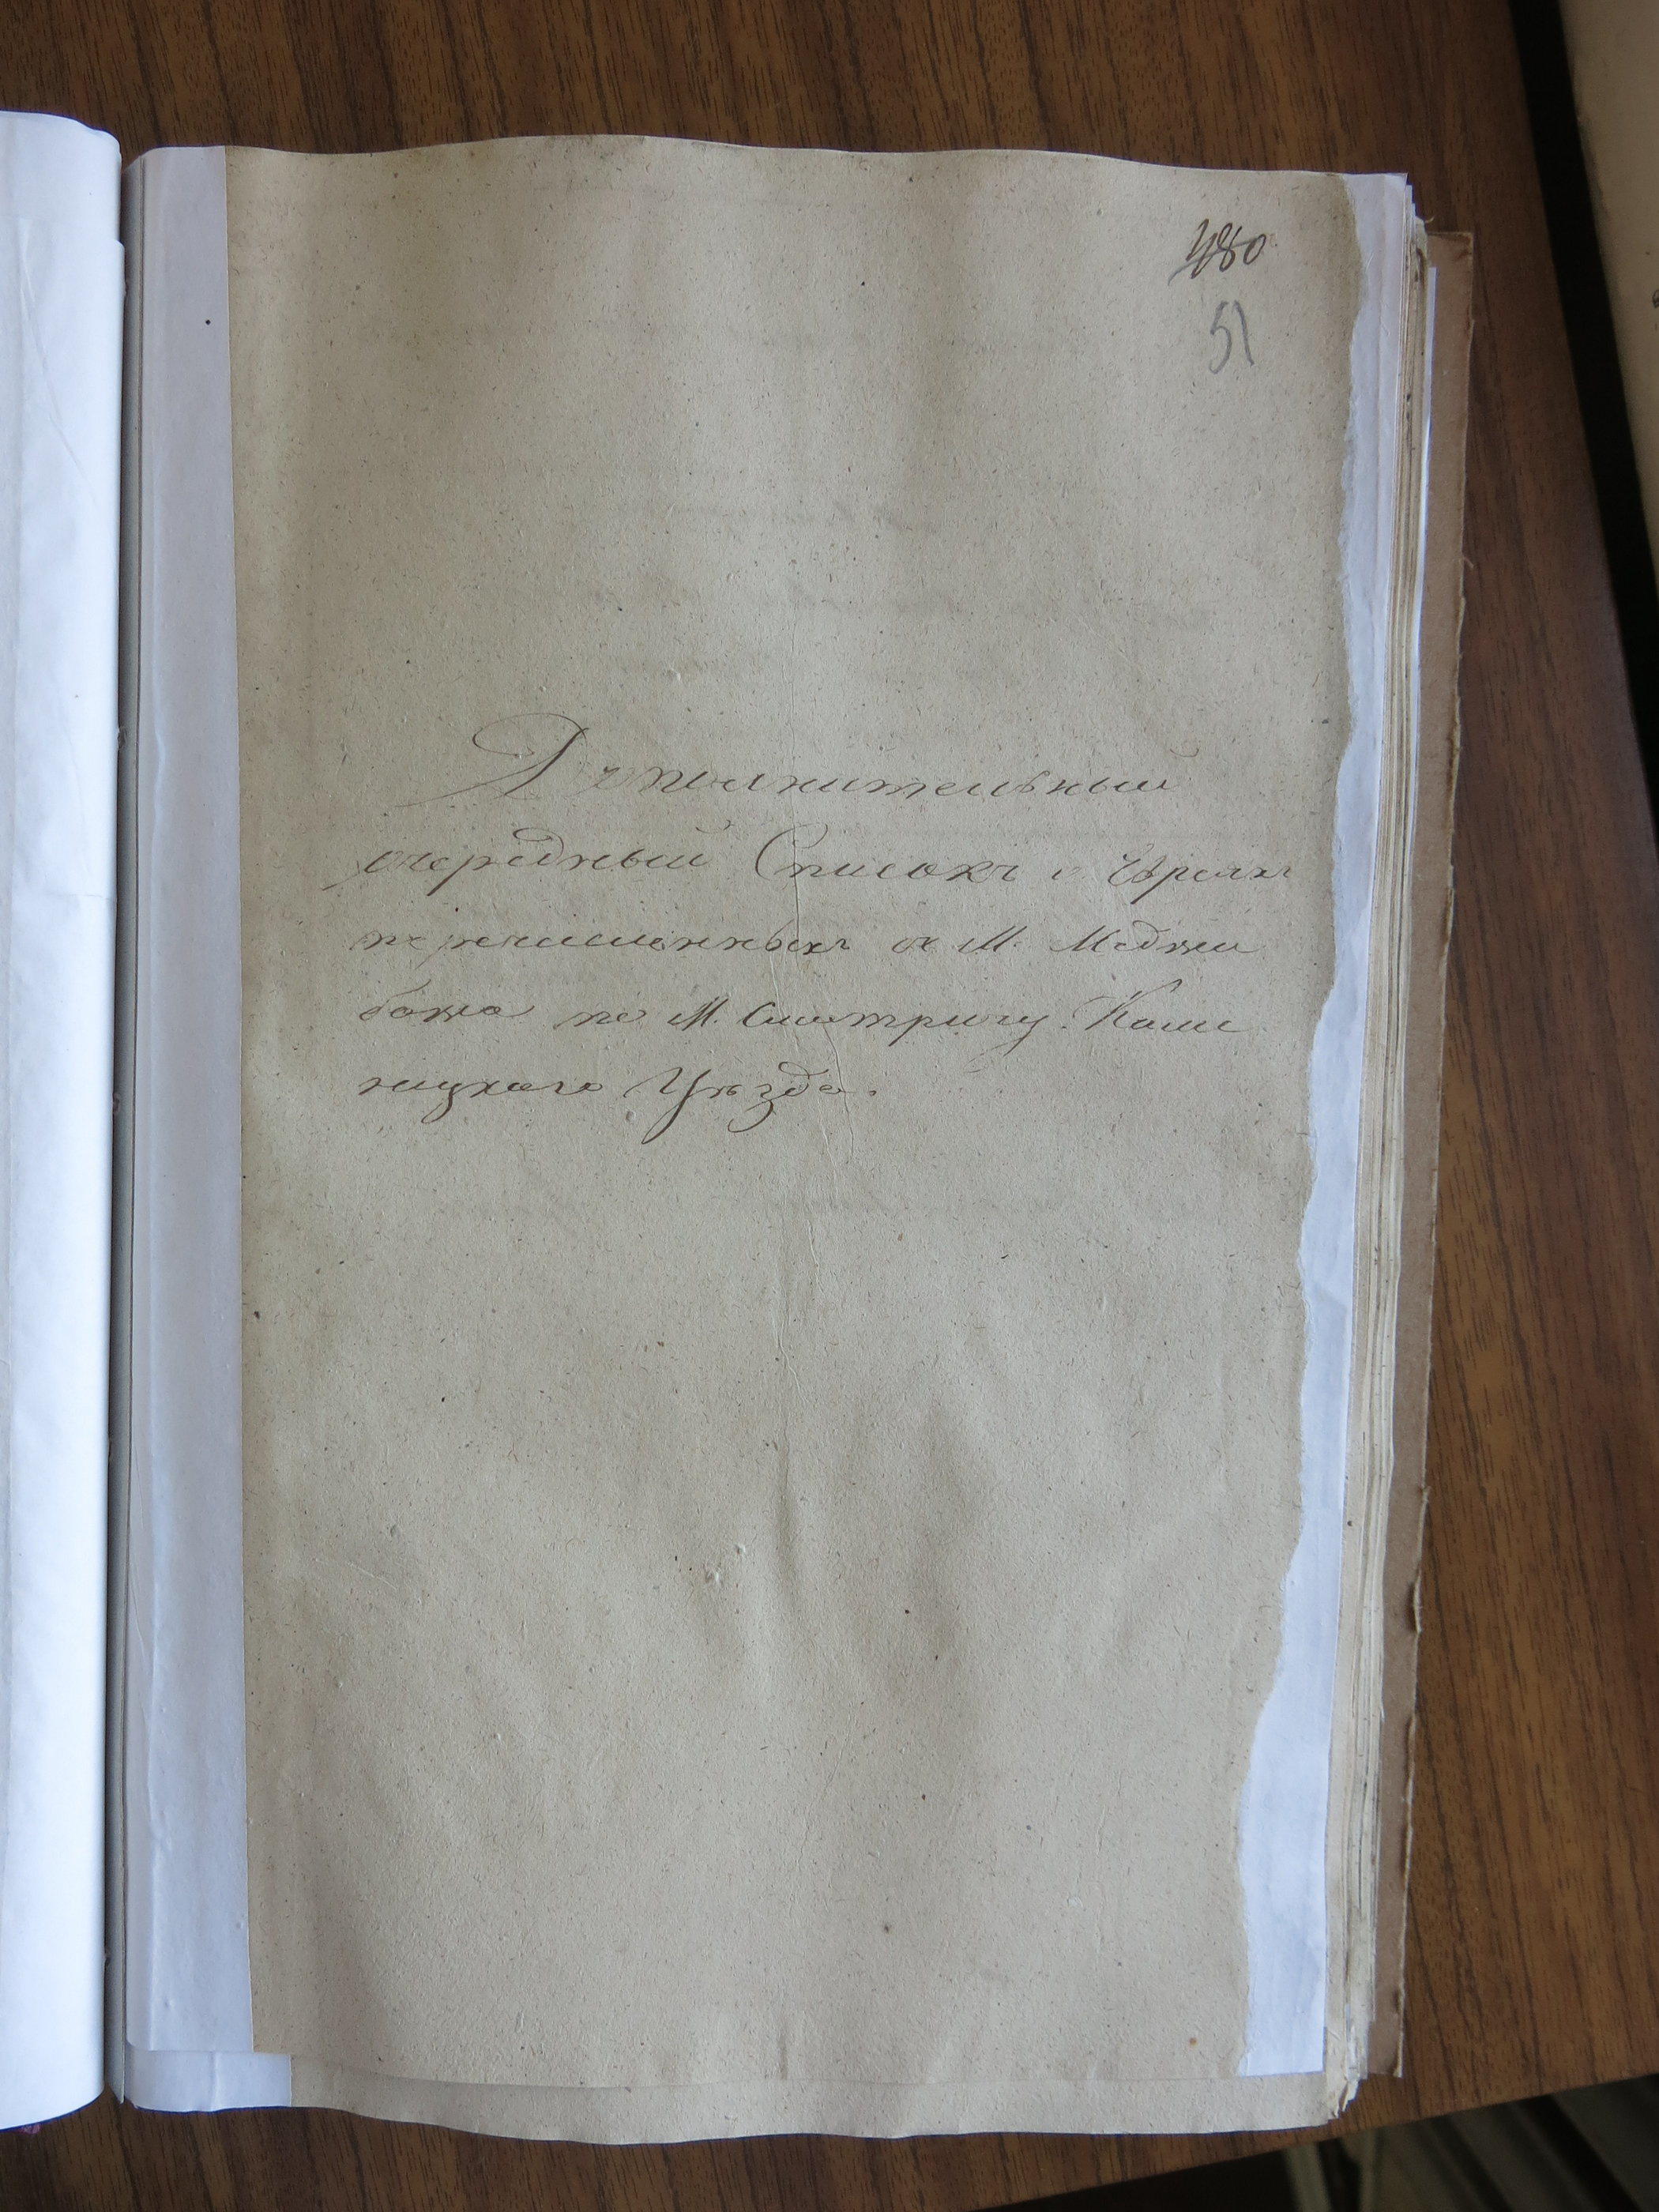 480
51
Дополнительный
очередный Списокъ о Евреяхъ
перечисленныхъ съ М. Меджи
божа по М. Смотричу Каме
ницкаго Уѣзда.